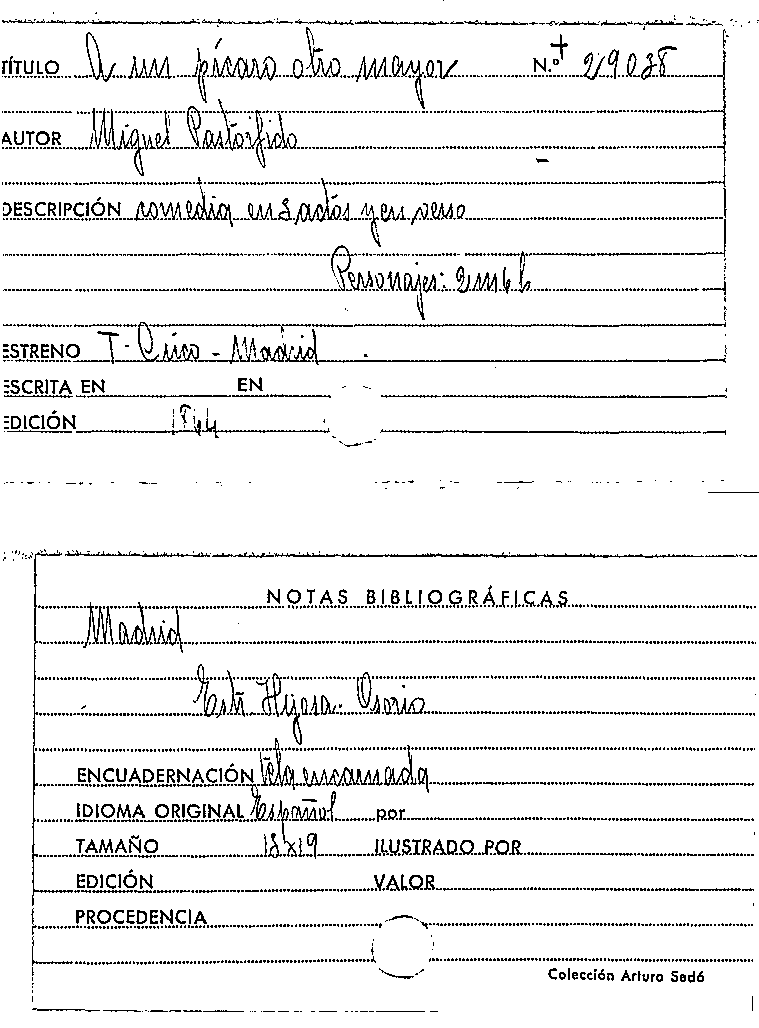 TÍTULO A un pícaro otro mayor N.º 29038
AUTOR Miguel Pastorfido
DESCRIPCIÓN comedia en 3 actos y en verso
Personajes: 2m6h
ESTRENO T. Circo - Madrid
ESCRITA EN EN
EDICIÓN 1844
NOTAS BIBLIOGRÁFICAS
Madrid
Estr. Hijosa - Osorio
ENCUADERNACIÓN tela encarnada
IDIOMA ORIGINAL Español por
TAMAÑO 13x19 ILUSTRADO POR
EDICIÓN VALOR
PROCEDENCIA
Colección Arturo Sedó